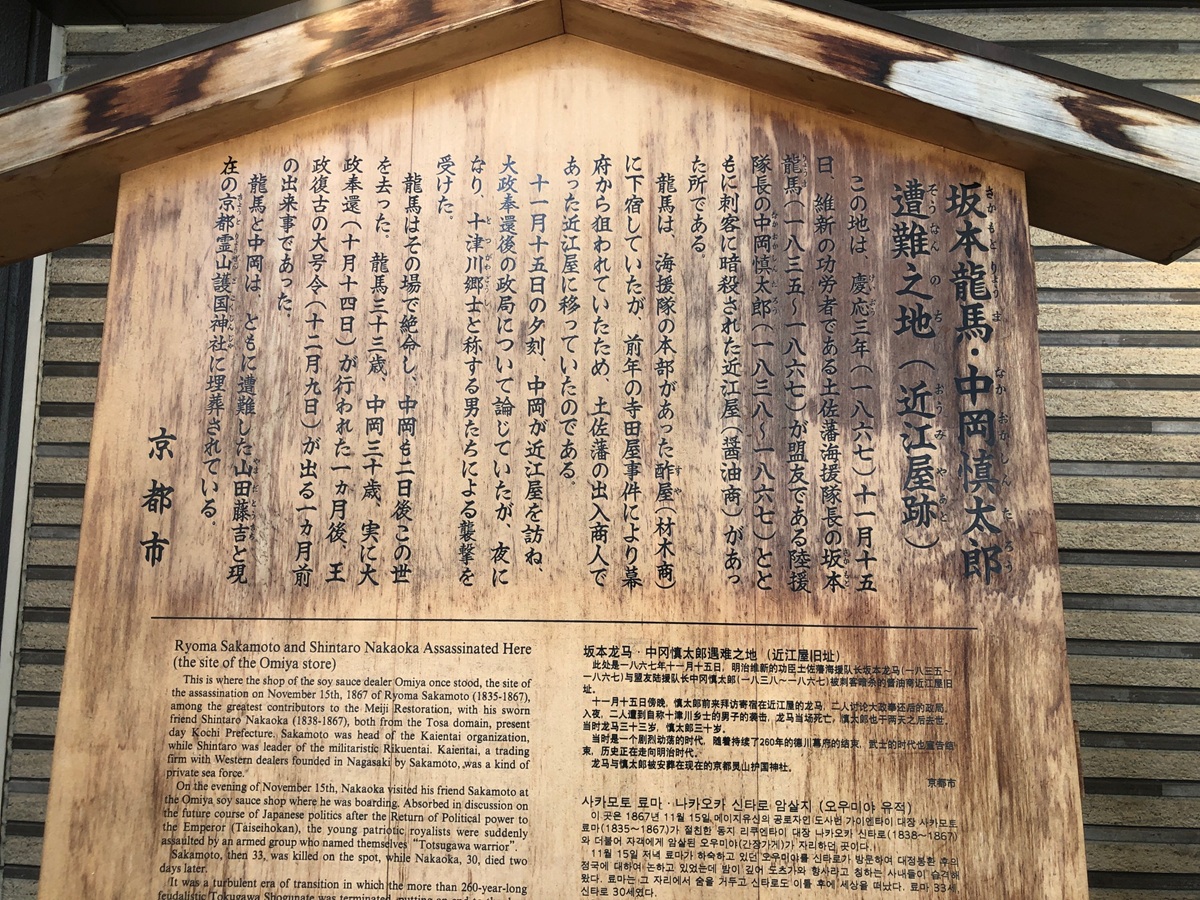 坂本龍馬・中岡慎太郎
遭難之地（近江屋跡）
この地は、慶応三年（一八六七）十一月十五
日、維新の功労者である土佐藩海援隊長の坂本
龍馬（一八三五～一八六七）が盟友である陸援
隊長の中岡慎太郎（一八三八～一八六七）とと
もに刺客に暗殺された近江屋（醤油商）があっ
た所である。
龍馬は、海援隊の本部があった酢屋（材木商）
に下宿していたが、前年の寺田屋事件により幕
府から狙われていたため、土佐藩の出入商人で
あった近江屋に移っていたのである。
十一月十五日の夕刻、中岡が近江屋を訪ね、
大政奉還後の政局について論じていたが、夜に
なり、十津川郷士と称する男たちによる襲撃を
受けた。
龍馬はその場で絶命し、中岡も二日後この世
を去った。龍馬三十三歳、中岡三十歳、実に大
政奉還（十月十四日）が行われた一カ月後、王
政復古の大号令（十二月九日）が出る一カ月前
の出来事であった。
龍馬と中岡は、ともに遭難した山田藤吉と現
在の京都霊山護国神社に埋葬されている。
京都市
Ryoma Sakamoto and Shintaro Nakaoka Assassinated Here
(the site of the Omiya store)
This is where the shop of the soy sauce dealer Omiya once stood, the site of
the assassination on November 15th, 1867 of Ryoma Sakamoto (1835-1867),
among the greatest contributors to the Meiji Restoration, with his sworn
friend Shintaro Nakaoka (1838-1867), both from the Tosa domain, present
day Kochi Prefecture. Sakamoto was head of the Kaientai organization,
while Shintaro was leader of the militaristic Rikuentai. Kaientai, a trading
firm with Western dealers founded in Nagasaki by Sakamoto, was a kind of
private sea force.
On the evening of November 15th, Nakaoka visited his friend Sakamoto at
the Omiya soy sauce shop where he was boarding. Absorbed in discussion on
the future course of Japanese politics after the Return of Political power to
the Emperor (Taiseihokan), the young patriotic royalists were suddenly
assaulted by an armed group who named themselves "Totsugawa warrior".
Sakamoto, then 33, was killed on the spot, while Nakaoka, 30, died two
days later.
It was a turbulent era of transition in which the more than 260-year-long
feudalistic Tokugawa Shogunate was terminated, putting an end to the
坂本龙马・中冈慎太郎遇难之地（近江屋旧址）
此处是一八六七年十一月十五日，明治维新的功臣土佐藩海援队长坂本龙马（一八三五～
一八六七）与盟友陆援队长中冈慎太郎（一八三八～一八六七）被刺客暗杀的酱油商近江屋旧
址。
十一月十五日傍晚，慎太郎前来拜访寄宿在近江屋的龙马，二人讨论大政奉还后的政局，
入夜，二人遭到自称十津川乡士的男子的袭击，龙马当场死亡，慎太郎也于两天之后去世，
当时龙马三十三岁，慎太郎三十岁。
当时是一个剧烈动荡的时代，随着持续了260年的德川幕府的结束，武士的时代也宣告结
束，历史正在走向明治时代。
龙马与慎太郎被安葬在现在的京都灵山护国神社。
京都市
사카모토 료마・나카오카 신타로 암살지 (오우미야 유적)
이 곳은 1867년 11월 15일 메이지유신의 공로자인 도사번 가이엔타이 대장 사카모토
료마(1835～1867)가 절친한 동지 리쿠엔타이 대장 나카오카 신타로(1838～1867)
와 더불어 자객에게 암살된 오우미야(간장가게)가 자리하던 곳이다.
11월 15일 저녁 료마가 하숙하고 있던 오우미야를 신타로가 방문하여 대정봉환 후의
정국에 대하여 논하고 있었는데 밤이 깊어 도츠가와 향사라고 칭하는 사내들이 습격해
왔다. 료마는 그 자리에서 숨을 거두고 신타로도 이틀 후에 세상을 떠났다. 료마 33세,
신타로 30세였다.